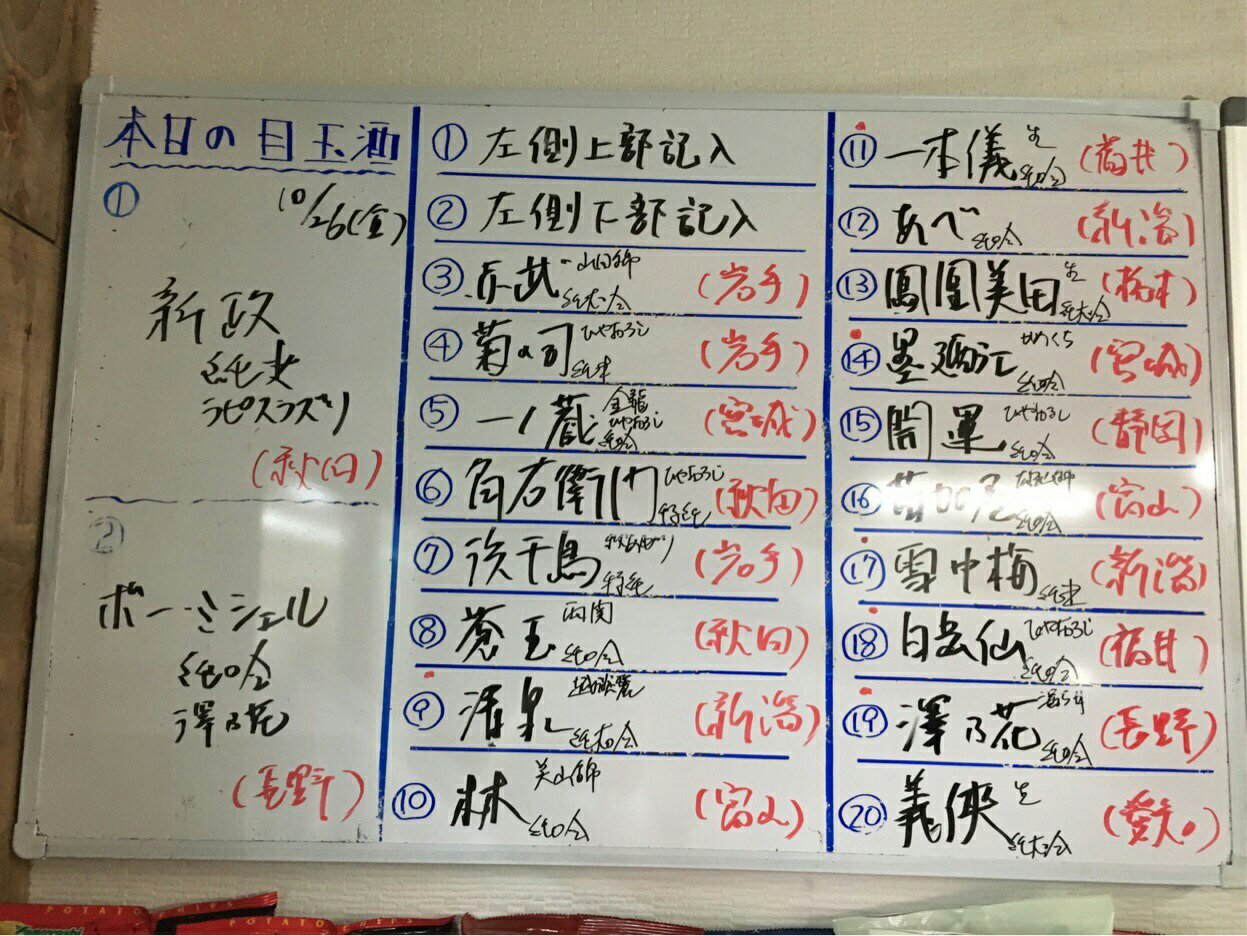 本日の目玉酒
10/26(金)
①
新政
純米
ラピスラズリ
(秋田)
②
ボー・ミシェル
純吟
澤乃花
(長野)
① 左側上部記入
② 左側下部記入
③ 山田錦
純大吟 (岩手)
④ 菊の司 ひやおろし
純米 (岩手)
⑤ 一ノ蔵 金龍
ひやおろし
純吟 (宮城)
⑥ 角右衛門 ひやおろし
特純 (秋田)
⑦ 浜千鳥
特純 (岩手)
⑧ 蒼玉 両関
純吟 (秋田)
⑨ 清泉 越淡麗
純大吟 (新潟)
⑩ 林 美山錦
純吟 (富山)
⑪ 一本儀 生
純吟 (福井)
⑫ あべ 純吟 (新潟)
⑬ 鳳凰美田 生
純大吟 (栃木)
⑭ 墨廼江 かめくち
純吟 (宮城)
⑮ 開運 ひやおろし
純吟 (静岡)
⑯ 純吟 (富山)
⑰ 雪中梅 純米 (新潟)
⑱ 白岳仙 ひやおろし
純吟 (福井)
⑲ 澤乃花
純吟 (長野)
⑳ 義侠 生
純大吟 (愛知)
POTATO
POTATO